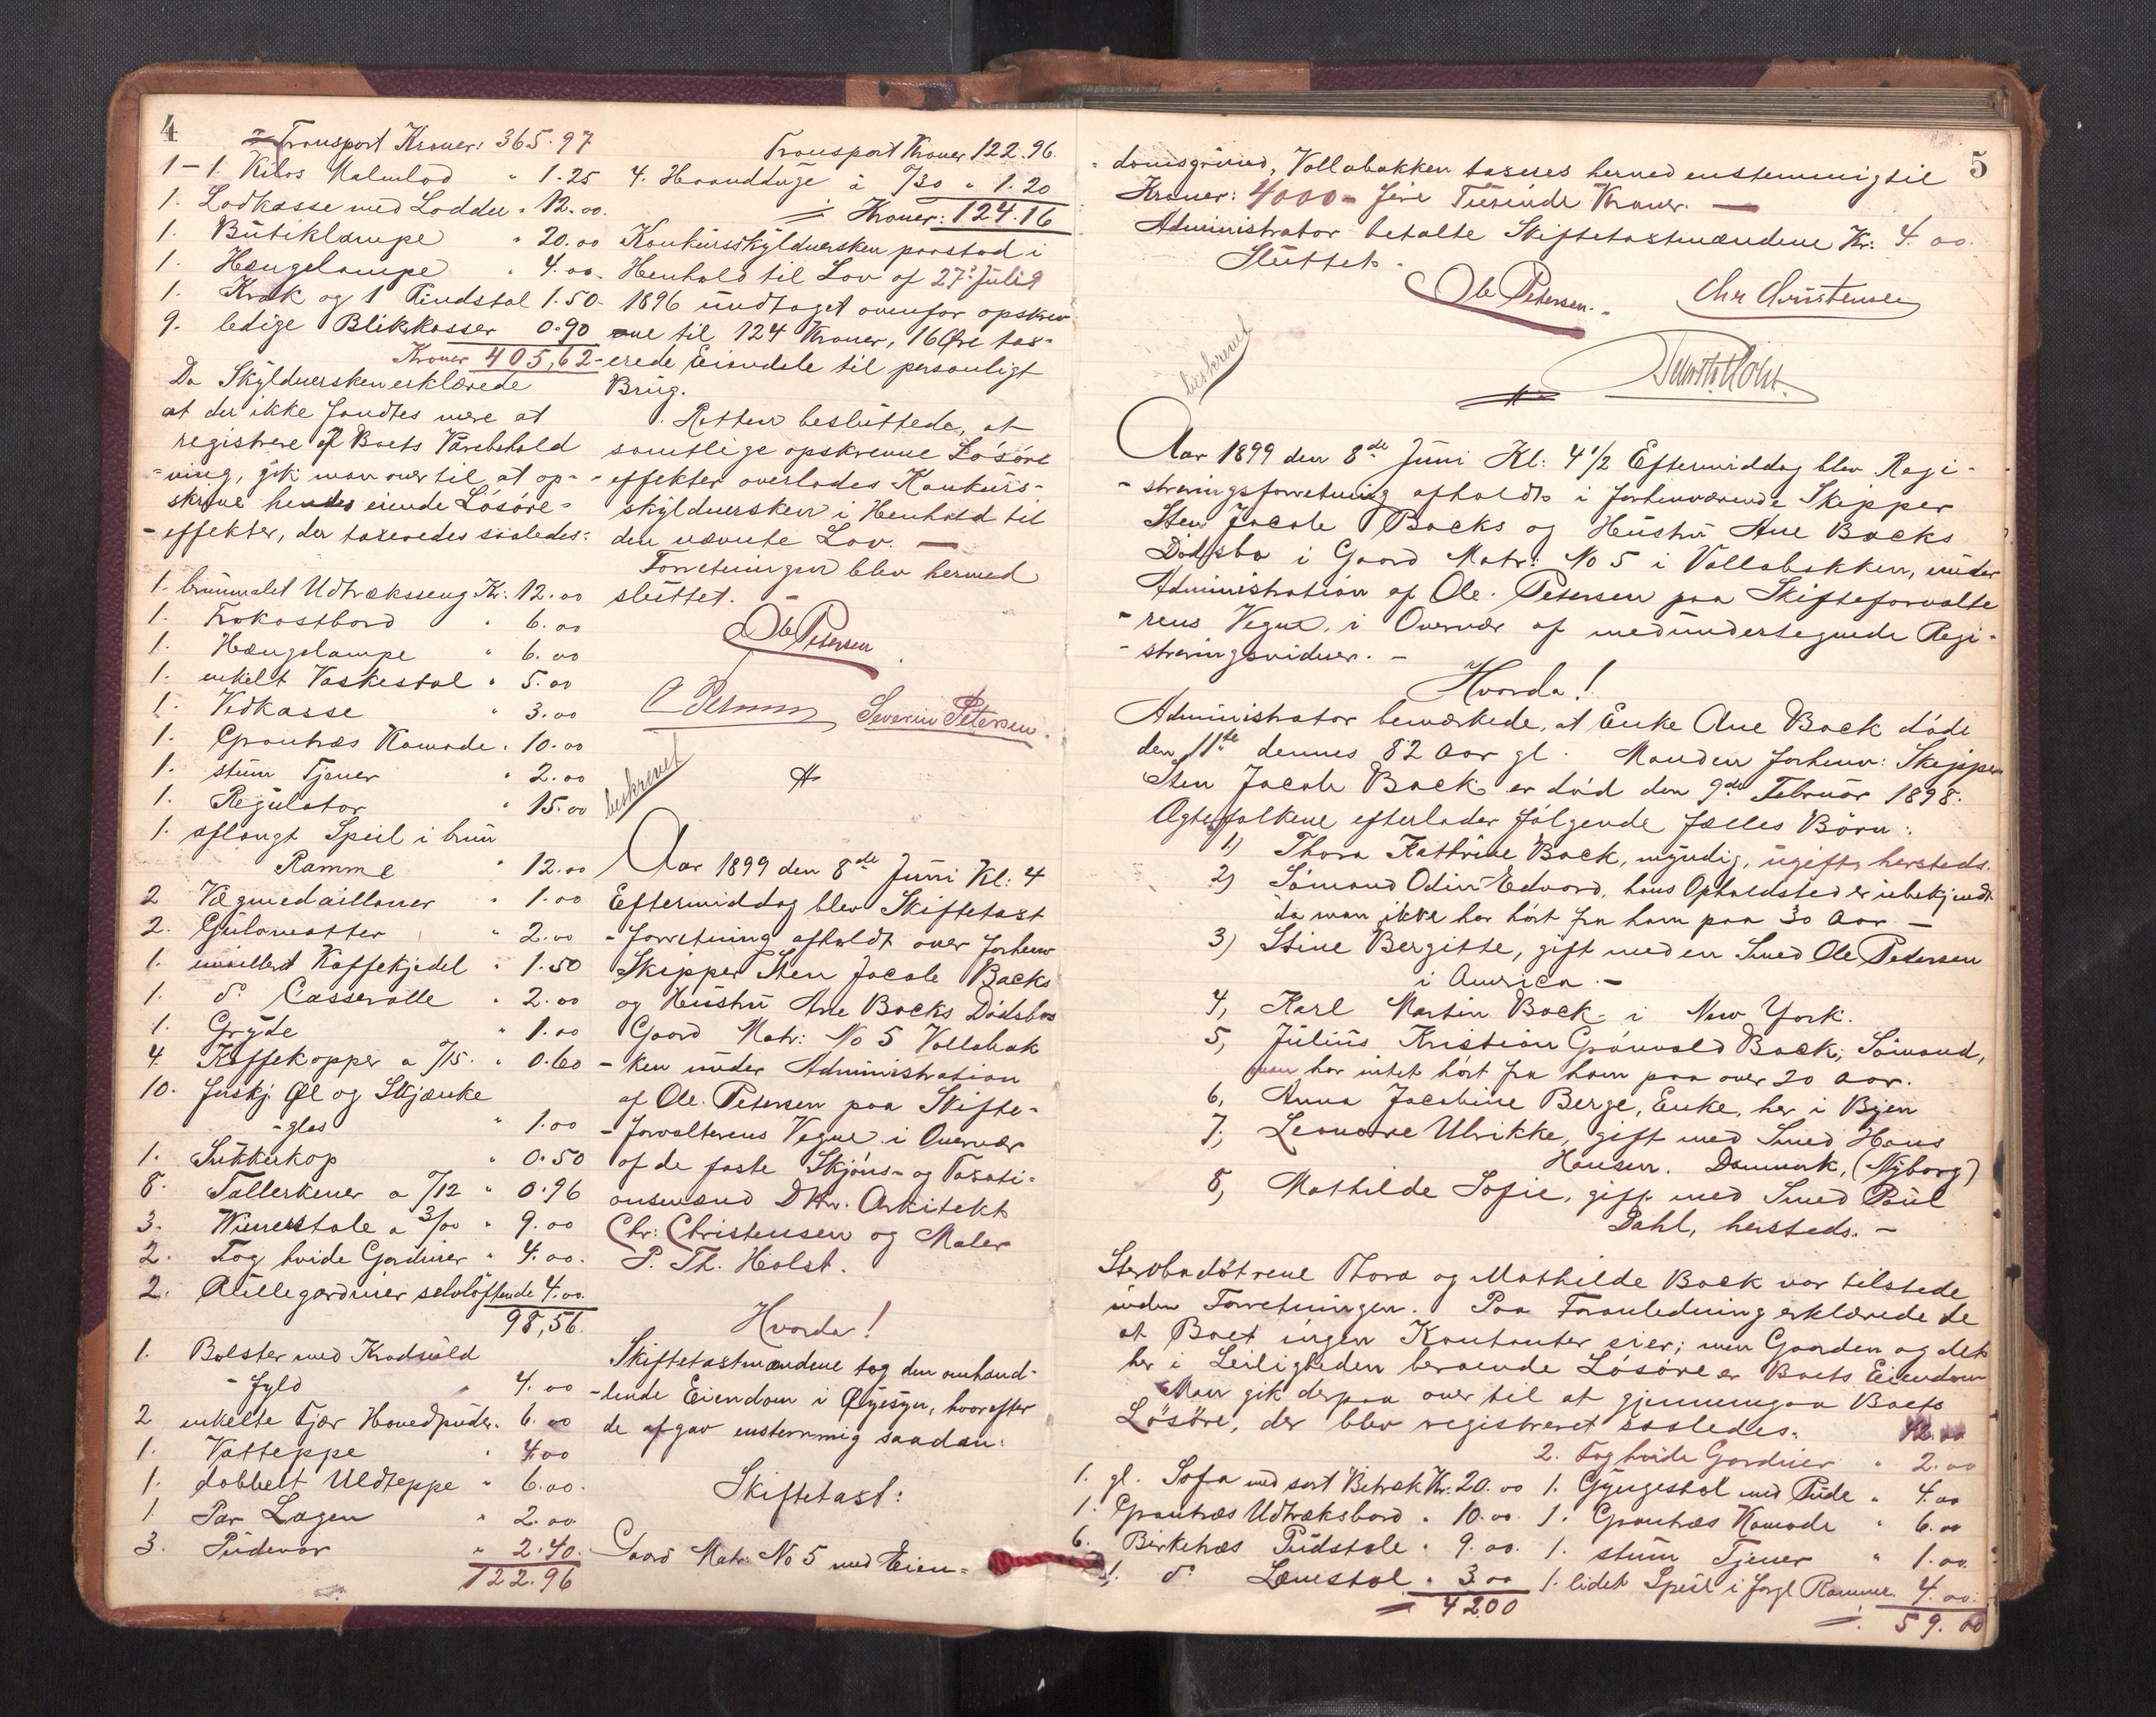 4
Transport Kroner: 365.97
1-1. Kilos Malmlod " 1.25
1. Lodkasse med Lodder " 12.00.
1. Butiklampe " 20.00
1. Hængelampe " 4.00.
1. Krak og 1 Pindstol 1.50.
9. ledige Blikkasser 0.90
Kroner 405,62
Da Skyldnersken erklærede
at der ikke fandtes mere at
registrere af Boets Varebehold
-ning, gik man over til at op-
skrive hendes eiende Løsøre-
-effekter, der taxeredes saaledes:
1. brunmalet Udtræksseng Kr: 12.00
1. Frokostbord " 6.00
1. Hængelampe " 6.00
1. enkelt Vaskestol " 5.00
1. Vedkasse " 3.00
1. Grantræs Komode " 10.00
1. stum Tjener " 2.00
1. Regulator " 15.00
1. aflangt Speil i brun
Ramme " 12.00
2 Vægmedailloner " 1.00
2. Gulvmatter " 2.00
1. emillert Kaffekjedel " 1.50
1. do Casserolle " 2.00
1. Gryde " 1.00
4. Kaffekopper a /15. " 0.60
10. forskj. Øl og Skjænke
-glas " 1.00
1. Sukkerkop " 0.50
8. Tallerkener a /12 " 0.96
3. Wienerstole a 3/00 " 9.00
2. Fag hvide Gardiner " 4.00.
2. Rullegardiner selvløftende 4.00.
98,56.
1. Bolster med Krøduld
-fyld " 4.00
2 enkelte Fjær Hovedpuder. 6.00
1. Vatteppe " 4.00
1. dobbelt Uldteppe " 6.00.
1. Par Lagen " 2.00.
3. Pudevar " 2.40.
122.96
Transport Kroner 122.96.
4. Haandduge à /30 " 1.20
Kroner: 124.16
Konkursskyldnersken paastod i
Henhold til Lov af 27de Juli
1896 undtaget ovenfor opskrev
-ne til 124 Kroner, 16 Øre tax-
-erede Eiendele til personligt
Brug.
Retten besluttede, at
samtlige opskrevne Løsøre
-effekter overlodes Konkurs-
skyldnersken i Henhold til
den nævnte Lov. —
Forretningen blev hermed
sluttet. —
Ole Petersen
Severin Petersen.
beskrevet
Aar 1899 den 8de Juni Kl: 4
Eftermiddag blev Skiftetaxt
-forretning afholdt over forhenv
Skipper Sten Jacob Backs
og Hustru Ane Backs Dødsbos
Gaard Matr: No 5 Vollabak
-ken under Administration
af Ole. Petersen paa Skifte-
-forvalterens Vegne i Overvær
af de faste Skjøns- og Taxati-
onsmænd DHrr. Arkitekt
Chr: Christensen og Maler
P. Th. Holst.
Hvorda!
Skiftetaxtmændene tog den omhand-
-lende Eiendom i Øiesyn, hvorefter
de afgav enstemmig saadan:
Skiftetaxt:
Gaard Matr: No 5 med Eien-
5
-domsgrund, Vollabakken taxeres herved enstemmig til
Kroner: 4000 - fire Tusinde Kroner. —
Administrator betalte Skiftetaxtmændene Kr: 4.00.
Sluttet.
Ole Petersen. Chr Christensen
beskrevet
Aar 1899 den 8de Juni Kl: 4 1/2 Eftermiddag blev Regi-
-streringsforretning afholdt i forhenværende Skipper
Sten Jacob Backs og Hustru Ane Backs
Dødsbo i Gaard Matr: No 5 i Vollabakken, under
Administration af Ole. Petersen paa Skifteforvalte
-rens Vegne, i Overvær af medundertegnede Regi-
-streringsvidner. —
Hvorda!
Administrator bemærkede, at Enke Ane Back døde
den 11te dennes 82 Aar gl. Manden forhenv: Skipper
Sten Jacob Back er død den 9de Februar 1898.
Ægtefolkene efterlader følgende fælles Børn:
1) Thora Kathrine Back, myndig, ugift, hersteds.
2) Sømand Odin Edvard, hans Opholdsted er ubekjendt
da man ikke har hørt fra ham paa 30 Aar. —
3) Stine Bergitte, gift med en Smed Ole Petersen
i America. —
4, Karl Martin Back i New York.
5, Julius Kristian Grønvold Back, Sømand,
man har intet hørt fra ham paa over 20 Aar.
6, Anna Jacobine Berge, Enke, her i Byen
7, Leonore Ulrikke, gift med Smed Hans
Hansen. Danmark, (Nyborg)
8, Mathilde Sofie, gift med Smed Paul
Dahl, hersteds. —
Stervbodøtrene Thora og Mathilde Back var tilstede
under Forretningen. Paa Foranledning erklærede de
at Boet ingen Kontanter eier; men Gaarden og det
her i Leiligheden beroende Løsøre er Boets Eiendom
Man gik derpaa over til at gjennemgaa Boets
Løsøre, der blev registreret saaledes.
1. gl. Sofa med sort Betræk Kr. 20.00
1. Grantræs Udtræksbord " 10.00.
6. Birketræs Pudstole " 9.00.
1. do Lænestol " 3.00
42.00
42.00
2. Fag hvide Gardiner " 2.00
1. Gyngestol med Pude " 4.00
1. Grantræs Komode " 6.00
1. stum Tjener " 1.00.
1. lidet Speil i forgl Ramme 4.00.
59.00